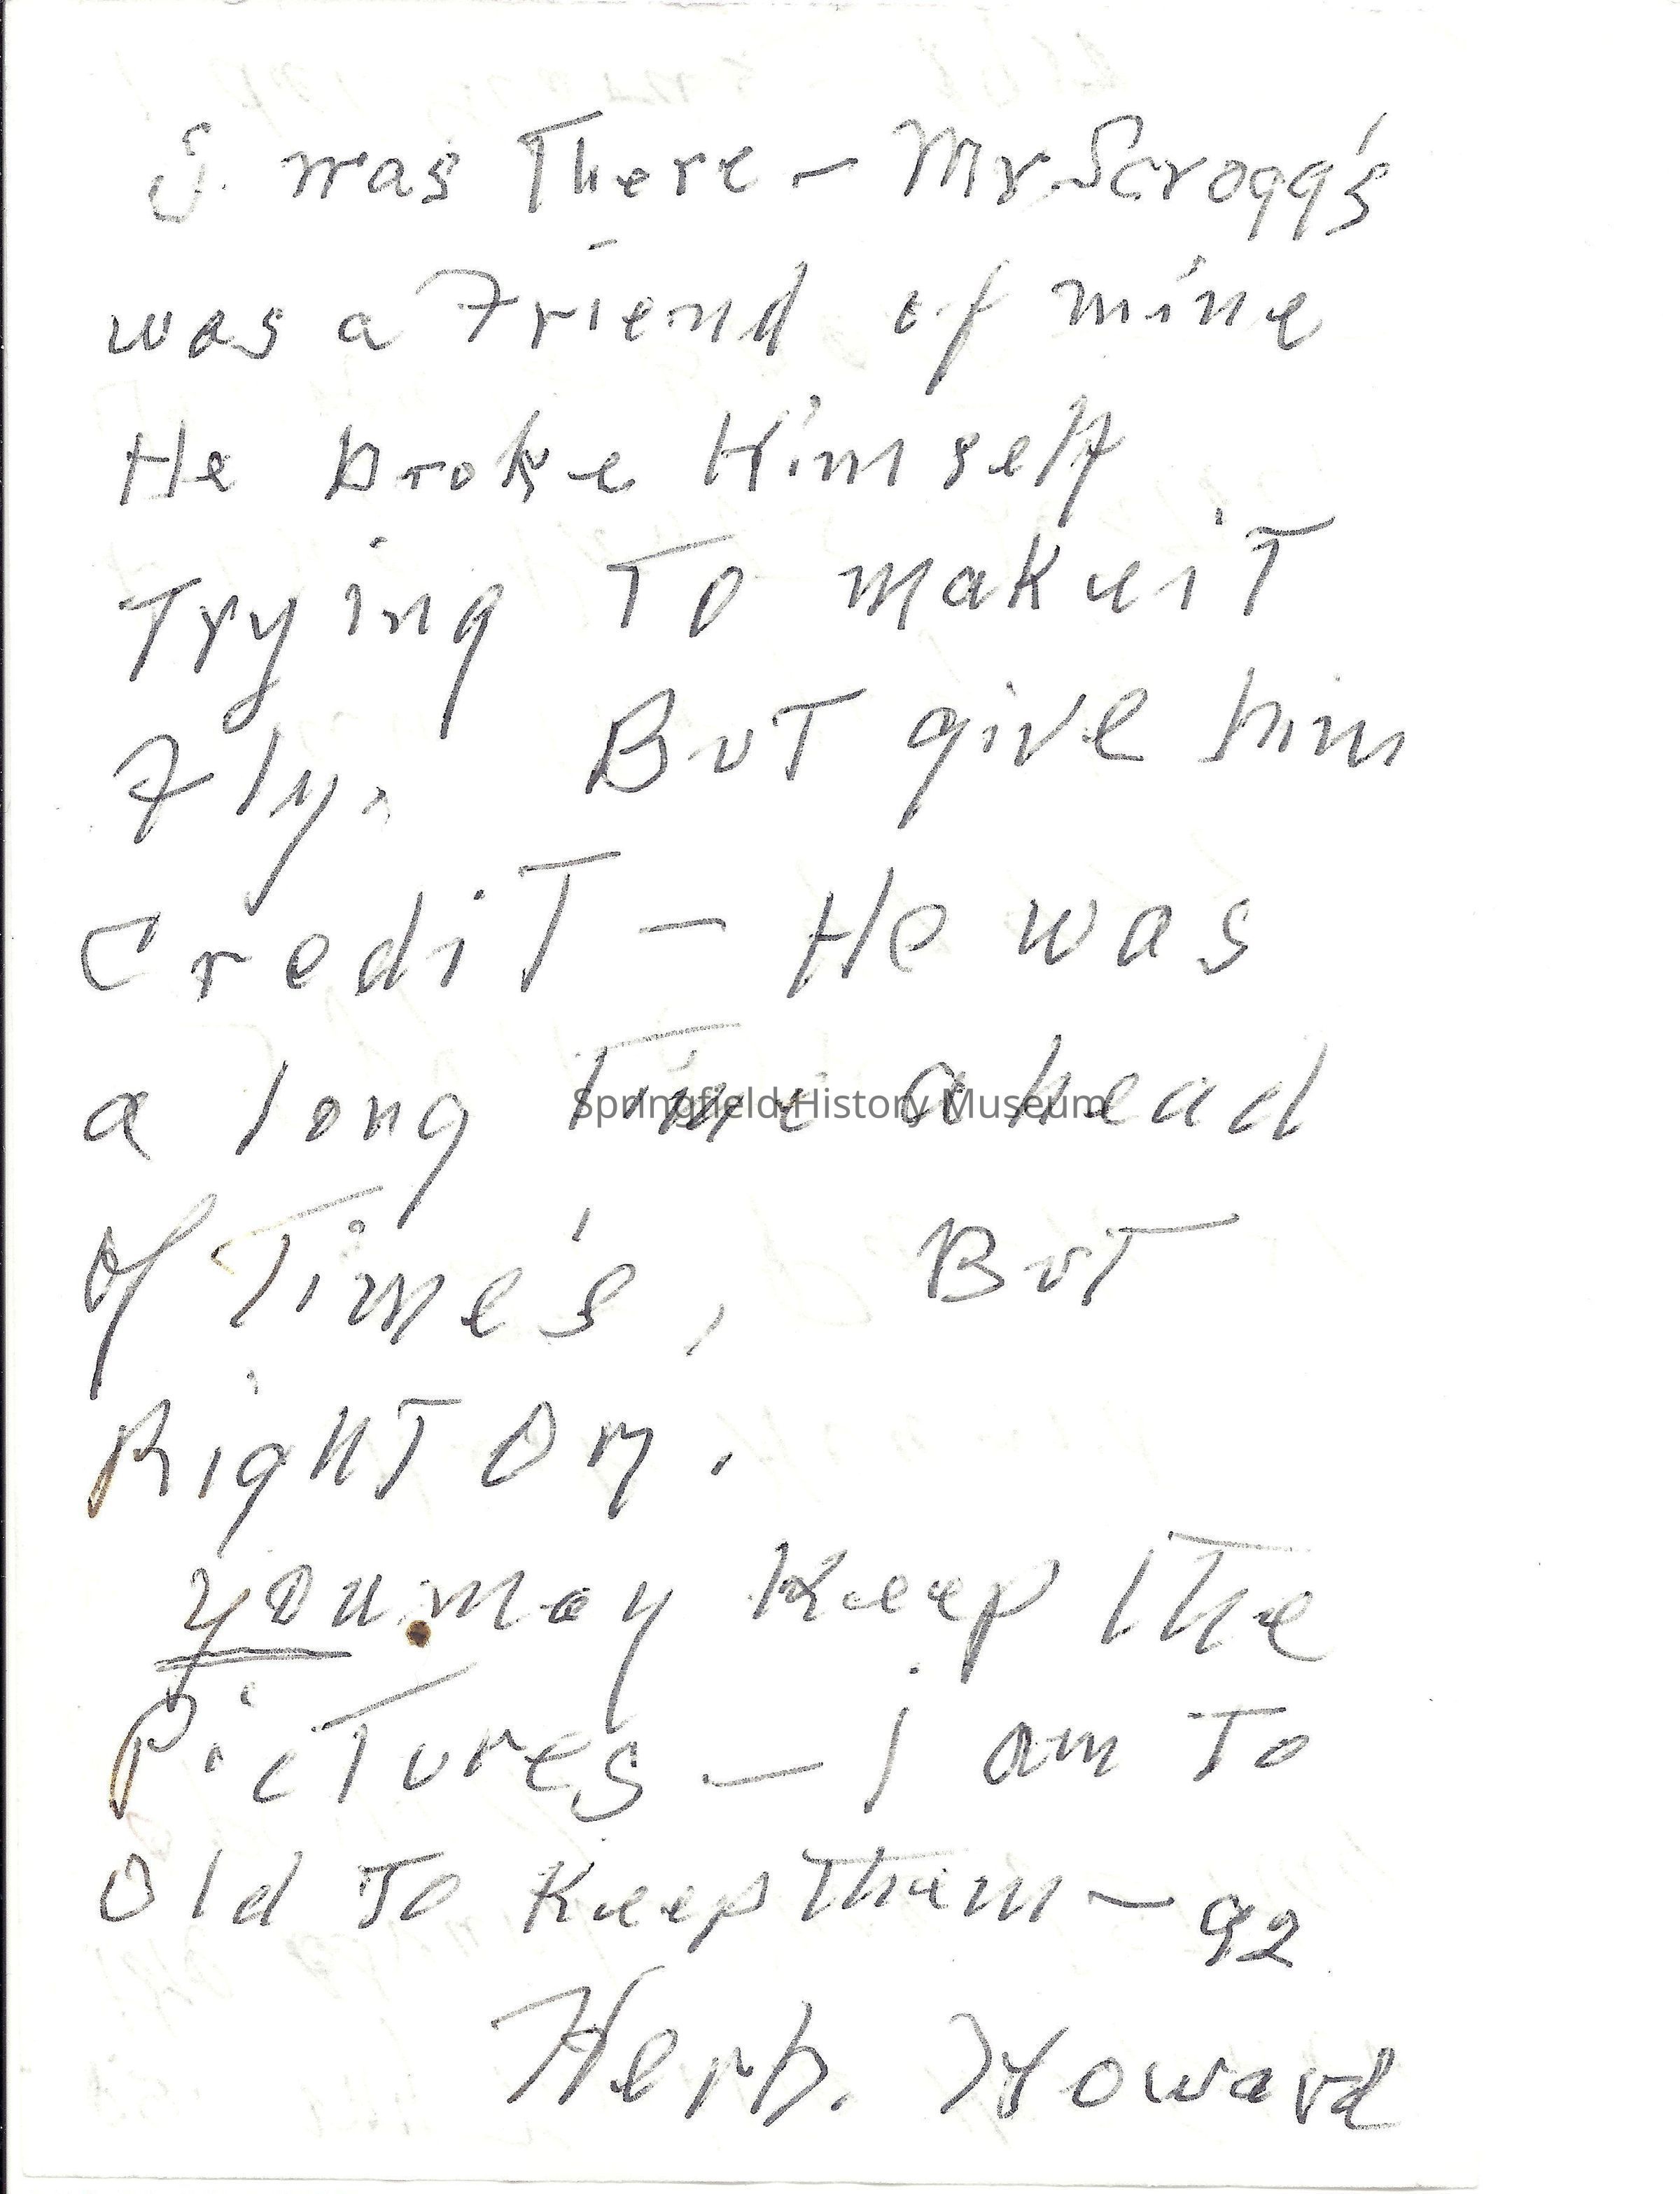 I was There - Mr Scrogg's
was a Friend of mine
He Broke Himself
Trying To make it
Fly. But give him
CrediT - He was
a long Time ahead
Springfield History Museum
of Time's, BuT
RighT On.
you may Keep The
PicTures - I am To
Old To Keep Them - 92
Herb. Howard